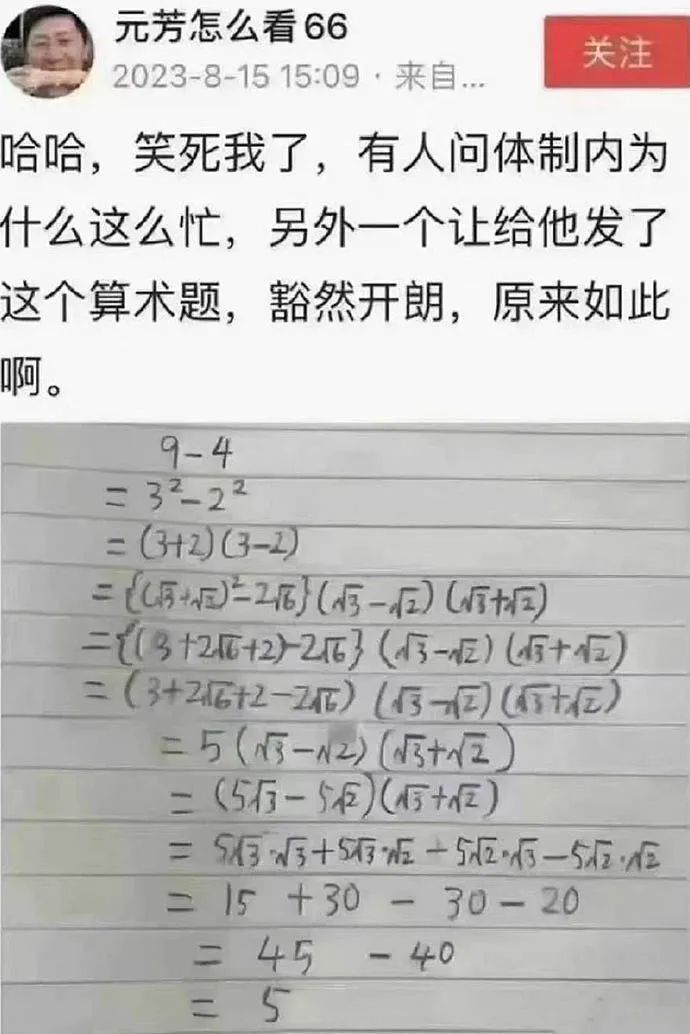 元芳怎么看66
2023-8-15 15:09 · 来自...
关注
哈哈，笑死我了，有人问体制内为
什么这么忙，另外一个让给他发了
这个算术题，豁然开朗，原来如此
啊。
9-4
= 3²-2²
= (3+2)(3-2)
={(√3+√2)²-2√6}(√3-√2)(√3+√2)
={(3+2√6+2)-2√6}(√3-√2)(√3+√2)
= (3+2√6+2-2√6)(√3-√2)(√3+√2)
= 5(√3-√2)(√3+√2)
= (5√3-5√2)(√3+√2)
= 5√3·√3+5√3·√2-5√2·√3-5√2·√2
= 15 +30 - 30 - 20
= 45 - 40
= 5